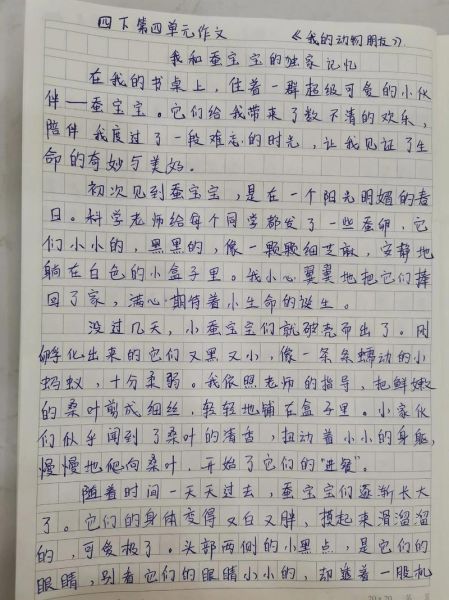 四下第四单元作文 《我的动物朋友》
我和蚕宝宝的独家记忆
在我的书桌上，住着一群超级可爱的小伙
伴——蚕宝宝。它们给我带来了数不清的欢乐，
陪伴我度过了一段难忘的时光，让我见证了生
命的奇妙与美妙。
初次见到蚕宝宝，是在一个阳光明媚的春
日。科学老师给每个同学都发了一些蚕卵，它
们小小的，黑黑的，像一颗颗细芝麻，安静地
躺在白色的小盒子里。我小心翼翼地把它们捧
回了家，满心期待着小生命的诞生。
没过几天，小蚕宝宝们就破壳而出了。刚
孵化出来的它们又黑又小，像一条条蠕动的小
蚂蚁，十分柔弱。我依照老师的指导，把鲜嫩
的桑叶剪成细丝，轻轻地铺在盒子里。小家伙
们似乎闻到了桑叶的清香，扭动着小小的身躯，
慢慢地爬向桑叶，开始了它们的"进餐"。
随着时间一天天过去，蚕宝宝们逐渐长大
了。它们的身体变得又白又胖，摸起来滑溜溜
的，可爱极了。头部两侧的小黑点，是它们的
眼睛，别看它们的眼睛小小的，却透着一股机
20×20